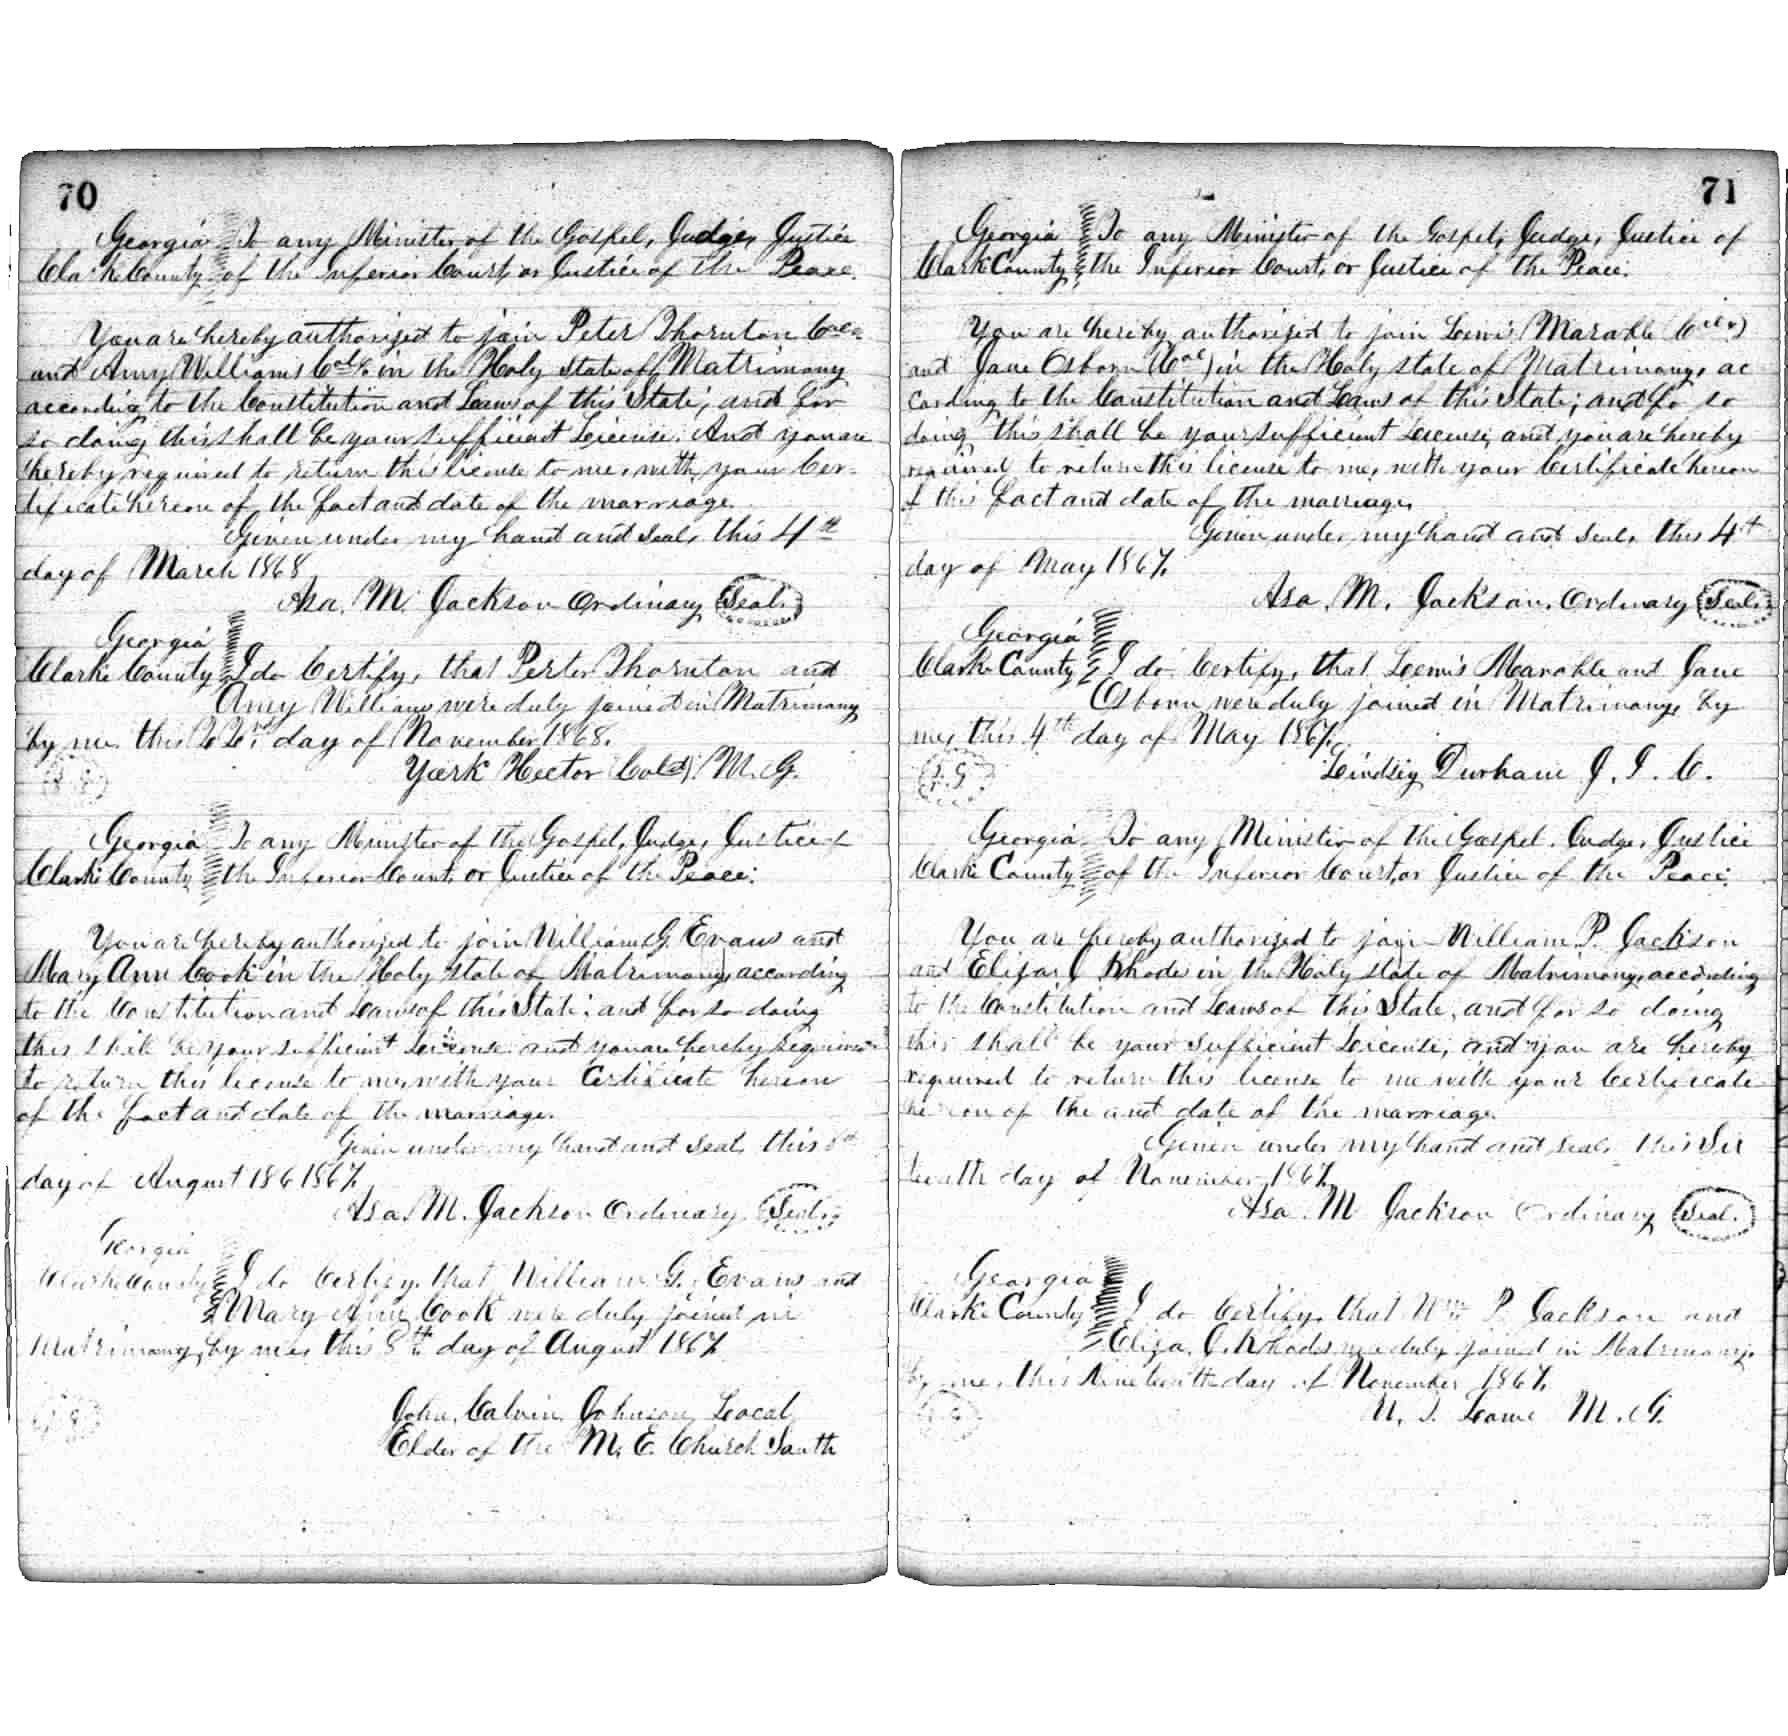 70
Georgia To any Minister of the Gospel, Judge, Justice
Clarke County of the Inferior Court, or Justice of the Peace.
You are hereby authorized to join Peter Thornton
and Amy Williams Cold in the Holy State of Matrimony
according to the Constitution and Laws of this State; and for
so doing this shall be your sufficient Leicense. And you are
hereby required to return this license to me, with your Cer-
tificate hereon of the fact and date of the marriage.
Given under my hand and seal, this 4th
day of March 1868
Asa. M. Jackson Ordinary Seal.
Georgia
Clarke County I do Certify, that Perter Thornton and
Amy Williams were duly joined in Matrimony
by me. this 22nd day of November 1868.
York Hector (Cold) M. G.
Georgia To any Minister of the Gospel, Judge, Justice of
Clarke County the Inferior Court, or Justice of the Peace:
You are hereby authorized to join William G. Evans and
Mary Ann Cook in the Holy state of Matrimony, according
to the Constitution and Laws of this State; and for so doing
this shall be your sufficient Leicense. and you are hereby required
to return this license to me, with your Certificate hereon
of the fact and date of the marriage.
Given under my hand and seal, this 8th
day of August 186 1867.
Asa. M. Jackson Ordinary Seal.
Georgia
Clarke County I do Certify, that William G. Evans and
Mary Ann Cook were duly joined in
Matrimony, by me, this 8th day of August 1867.
John Calvin Johnson, Local
Elder of the M. E. Church South
71
Georgia To any Minister of the Gospel, Judge, Justice of
Clark County the Inferior Court, or Justice of the Peace.
You are hereby authorized to join Lewis Marable
and Jane Osborn (Col) in the Holy state of Matrimony, ac
cording to the Constitution and Laws of this State; and fo so
doing this shall be your sufficient Leicense, and you are hereby
required to return this license to me, with your Certificate hereon
of this fact and date of the marriage.
Given under my hand and seal, this 4th
day of May 1867.
Asa. M. Jackson, Ordinary Seal.
Georgia
Clarke County I do Certify, that Lewis Marable and Jane
Osborn were duly joined in Matrimony, by
me, this 4th day of May 1867.
L. S. Lindsey Durham J. I. C.
Georgia To any Minister of the Gospel. Judge, Justice
Clarke County of the Inferior Court, or Justice of the Peace.
You are hereby authorized to join William P. Jackson
and Eliza J. Rhodes in the Holy state of Matrimony, according
to the Constitution and Laws of this State, and for so doing
this shall be your sufficient Leicense, and you are hereby
required to return this license to me with your Certificate
hereon of the and date of the marriage.
Given under my hand and seal, this Six
teenth day of November, 1867.
Asa. M Jackson Ordinary Seal.
Georgia
Clarke County I do Certify, that Wm P. Jackson and
Eliza. J. Rhodes were duly joined in Matrimony,
by me, this Nineteenth day of November 1867.
M. G.